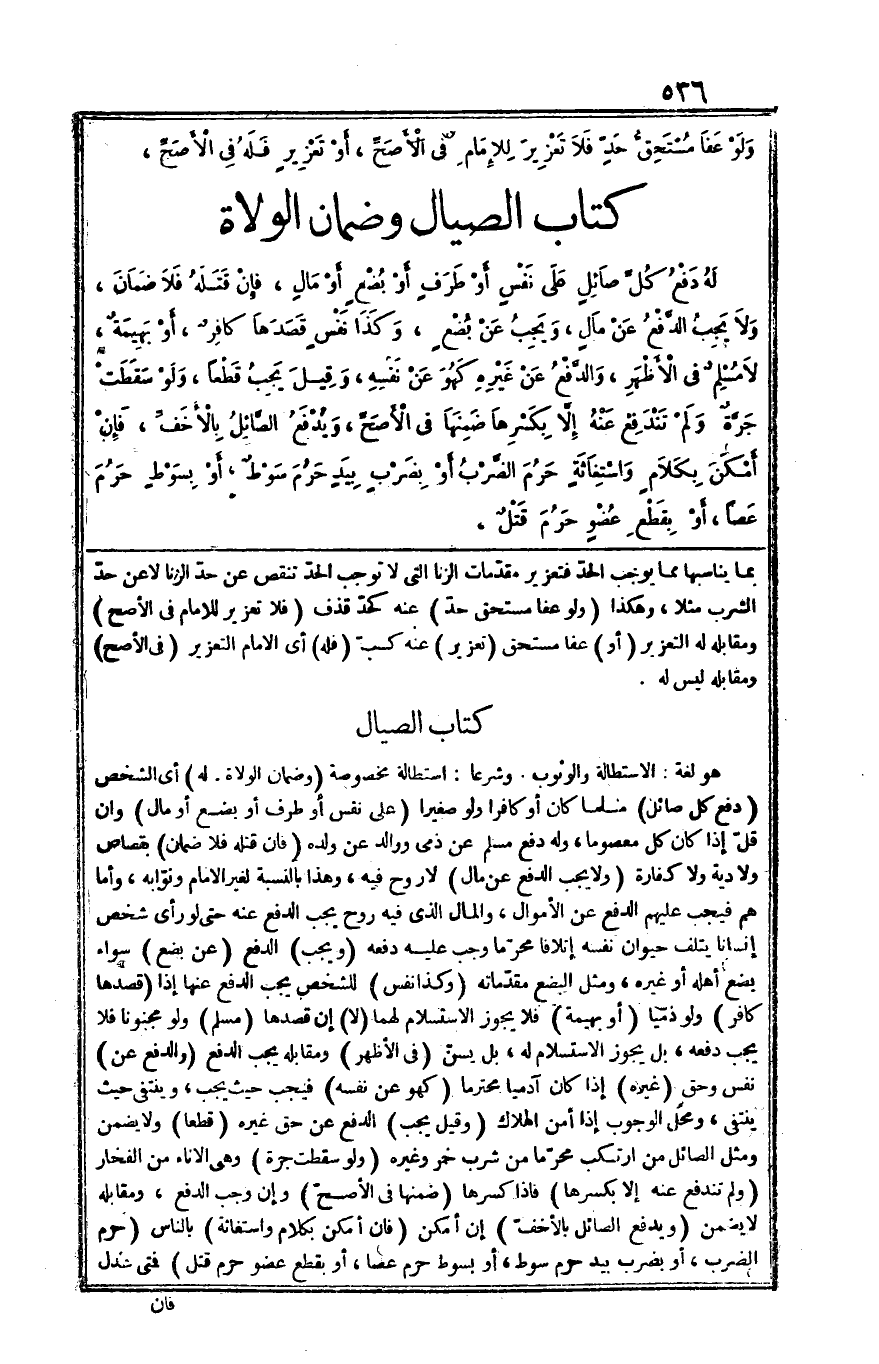 ٥٣٦
وَلَوْ عَفَا مُسْتَحِقُّ حَدٍّ فَلَا تَعْزِيرَ لِلإِمَامِ فى الْأَصَحِّ ، أَوْ تَعْزِيرٍ فَلَهُ فِى الْأَصَحِّ ،
كتاب الصيال وضمان الولاة
لَهُ دَفْعُ كُلِّ صَائِلٍ عَلَى نَفْسٍ أَوْ طَرَفٍ أَوْ بُضْعٍ أَوْ مَالٍ ، فَإِنْ قَتَلَهُ فَلَا ضَمَانَ ،
وَلَا يَجِبُ الدَّفْعُ عَنْ مَالٍ ، وَيَجِبُ عَنْ بُضْعٍ ، وَكَذَا نَفْسٍ قَصَدَهَا كَافِرٌ ، أَوْ بَهِيمَةٌ ،
لَا مُسْلِمٌ فى الْأَظْهَرِ ، وَالدَّفْعُ عَنْ غَيْرِهِ كَهُوَ عَنْ نَفْسِهِ ، وَقِيلَ يَجِبُ قَطْعاً ، وَلَوْ سَقَطَتْ
جَرَّةٌ وَلَمْ تَنْدَفِعْ عَنْهُ إِلَّا بِكَسْرِهَا ضَمِنَهَا فى الْأَصَحِّ ، وَيُدْفَعُ الصَّائِلُ بِالْأَخَفِّ ، فَإِنْ
أَمْكَنَ بِكَلَامٍ وَاسْتِغَاثَةٍ حَرُمَ الضَّرْبُ أَوْ بِضَرْبٍ بِيَدٍ حَرُمَ سَوْطٌ ، أَوْ بِسَوْطٍ حَرُمَ
عَصاً ، أَوْ بِقَطْعِ عُضْوٍ حَرُمَ قَتْلٌ .
بما يناسبها مما يوجب الحد فتعزير مقدّمات الزنا التى لا توجب الحدّ تنقص عن حدّ الزنا لا عن حدّ
الشرب مثلا ، وهكذا ( ولو عفا مستحق حدّ ) عنه كحدّ قذف ( فلا تعزير للامام فى الأصح )
ومقابله له التعزير ( أو ) عفا مستحق ( تعزير ) عنه كسبّ ( فله ) أى الامام التعزير ( فى الأصح )
ومقابله ليس له .
كتاب الصيال
هو لغة : الاستطالة والوثوب . وشرعا : استطالة مخصوصة ( وضمان الولاة . له ) أى الشخص
( دفع كل صائل ) مسلما كان أو كافرا ولو صغيرا ( على نفس أو طرف أو بضع أو مال ) وان
قلّ إذا كان كل معصوما ، وله دفع مسلم عن ذمى ووالد عن ولده ( فان قتله فلا ضمان ) بقصاص
ولا دية ولا كفارة ( ولا يجب الدفع عن مال ) لا روح فيه ، وهذا بالنسبة لغير الامام ونوّابه ، وأما
هم فيجب عليهم الدفع عن الأموال ، والمال الذى فيه روح يجب الدفع عنه حتى لو رأى شخص
إنسانا يتلف حيوان نفسه إتلافا محرّما وجب عليه دفعه ( ويجب ) الدفع ( عن بضع ) سواء
بضع أهله أو غيره ، ومثل البضع مقدّماته ( وكذا نفس ) للشخص يجب الدفع عنها إذا ( قصدها
كافر ) ولو ذمّيا ( أو بهيمة ) فلا يجوز الاستسلام لهما ( لا ) إن قصدها ( مسلم ) ولو مجنونا فلا
يجب دفعه ، بل يجوز الاستسلام له ، بل يسنّ ( فى الأظهر ) ومقابله يجب الدفع ( والدفع عن )
نفس وحق ( غيره ) إذا كان آدميا محترما ( كهو عن نفسه ) فيجب حيث يجب ، وينتفى حيث
ينتفى ، ومحلّ الوجوب إذا أمن الهلاك ( وقيل يجب ) الدفع عن حق غيره ( قطعا ) ولا يضمن
ومثل الصائل من ارتكب محرّما من شرب خمر وغيره ( ولو سقطت جرة ) وهى الاناء من الفخار
( ولم تندفع عنه إلا بكسرها ) فاذا كسرها ( ضمنها فى الأصحّ ) وإن وجب الدفع ، ومقابله
لا يضمن ( ويدفع الصائل بالأخفّ ) إن أمكن ( فان أمكن بكلام واستغاثة ) بالناس ( حرم
الضرب ، أو بضرب بيد حرم سوط ، أو بسوط حرم عصا ، أو بقطع عضو حرم قتل ) فمتى عدل
فان